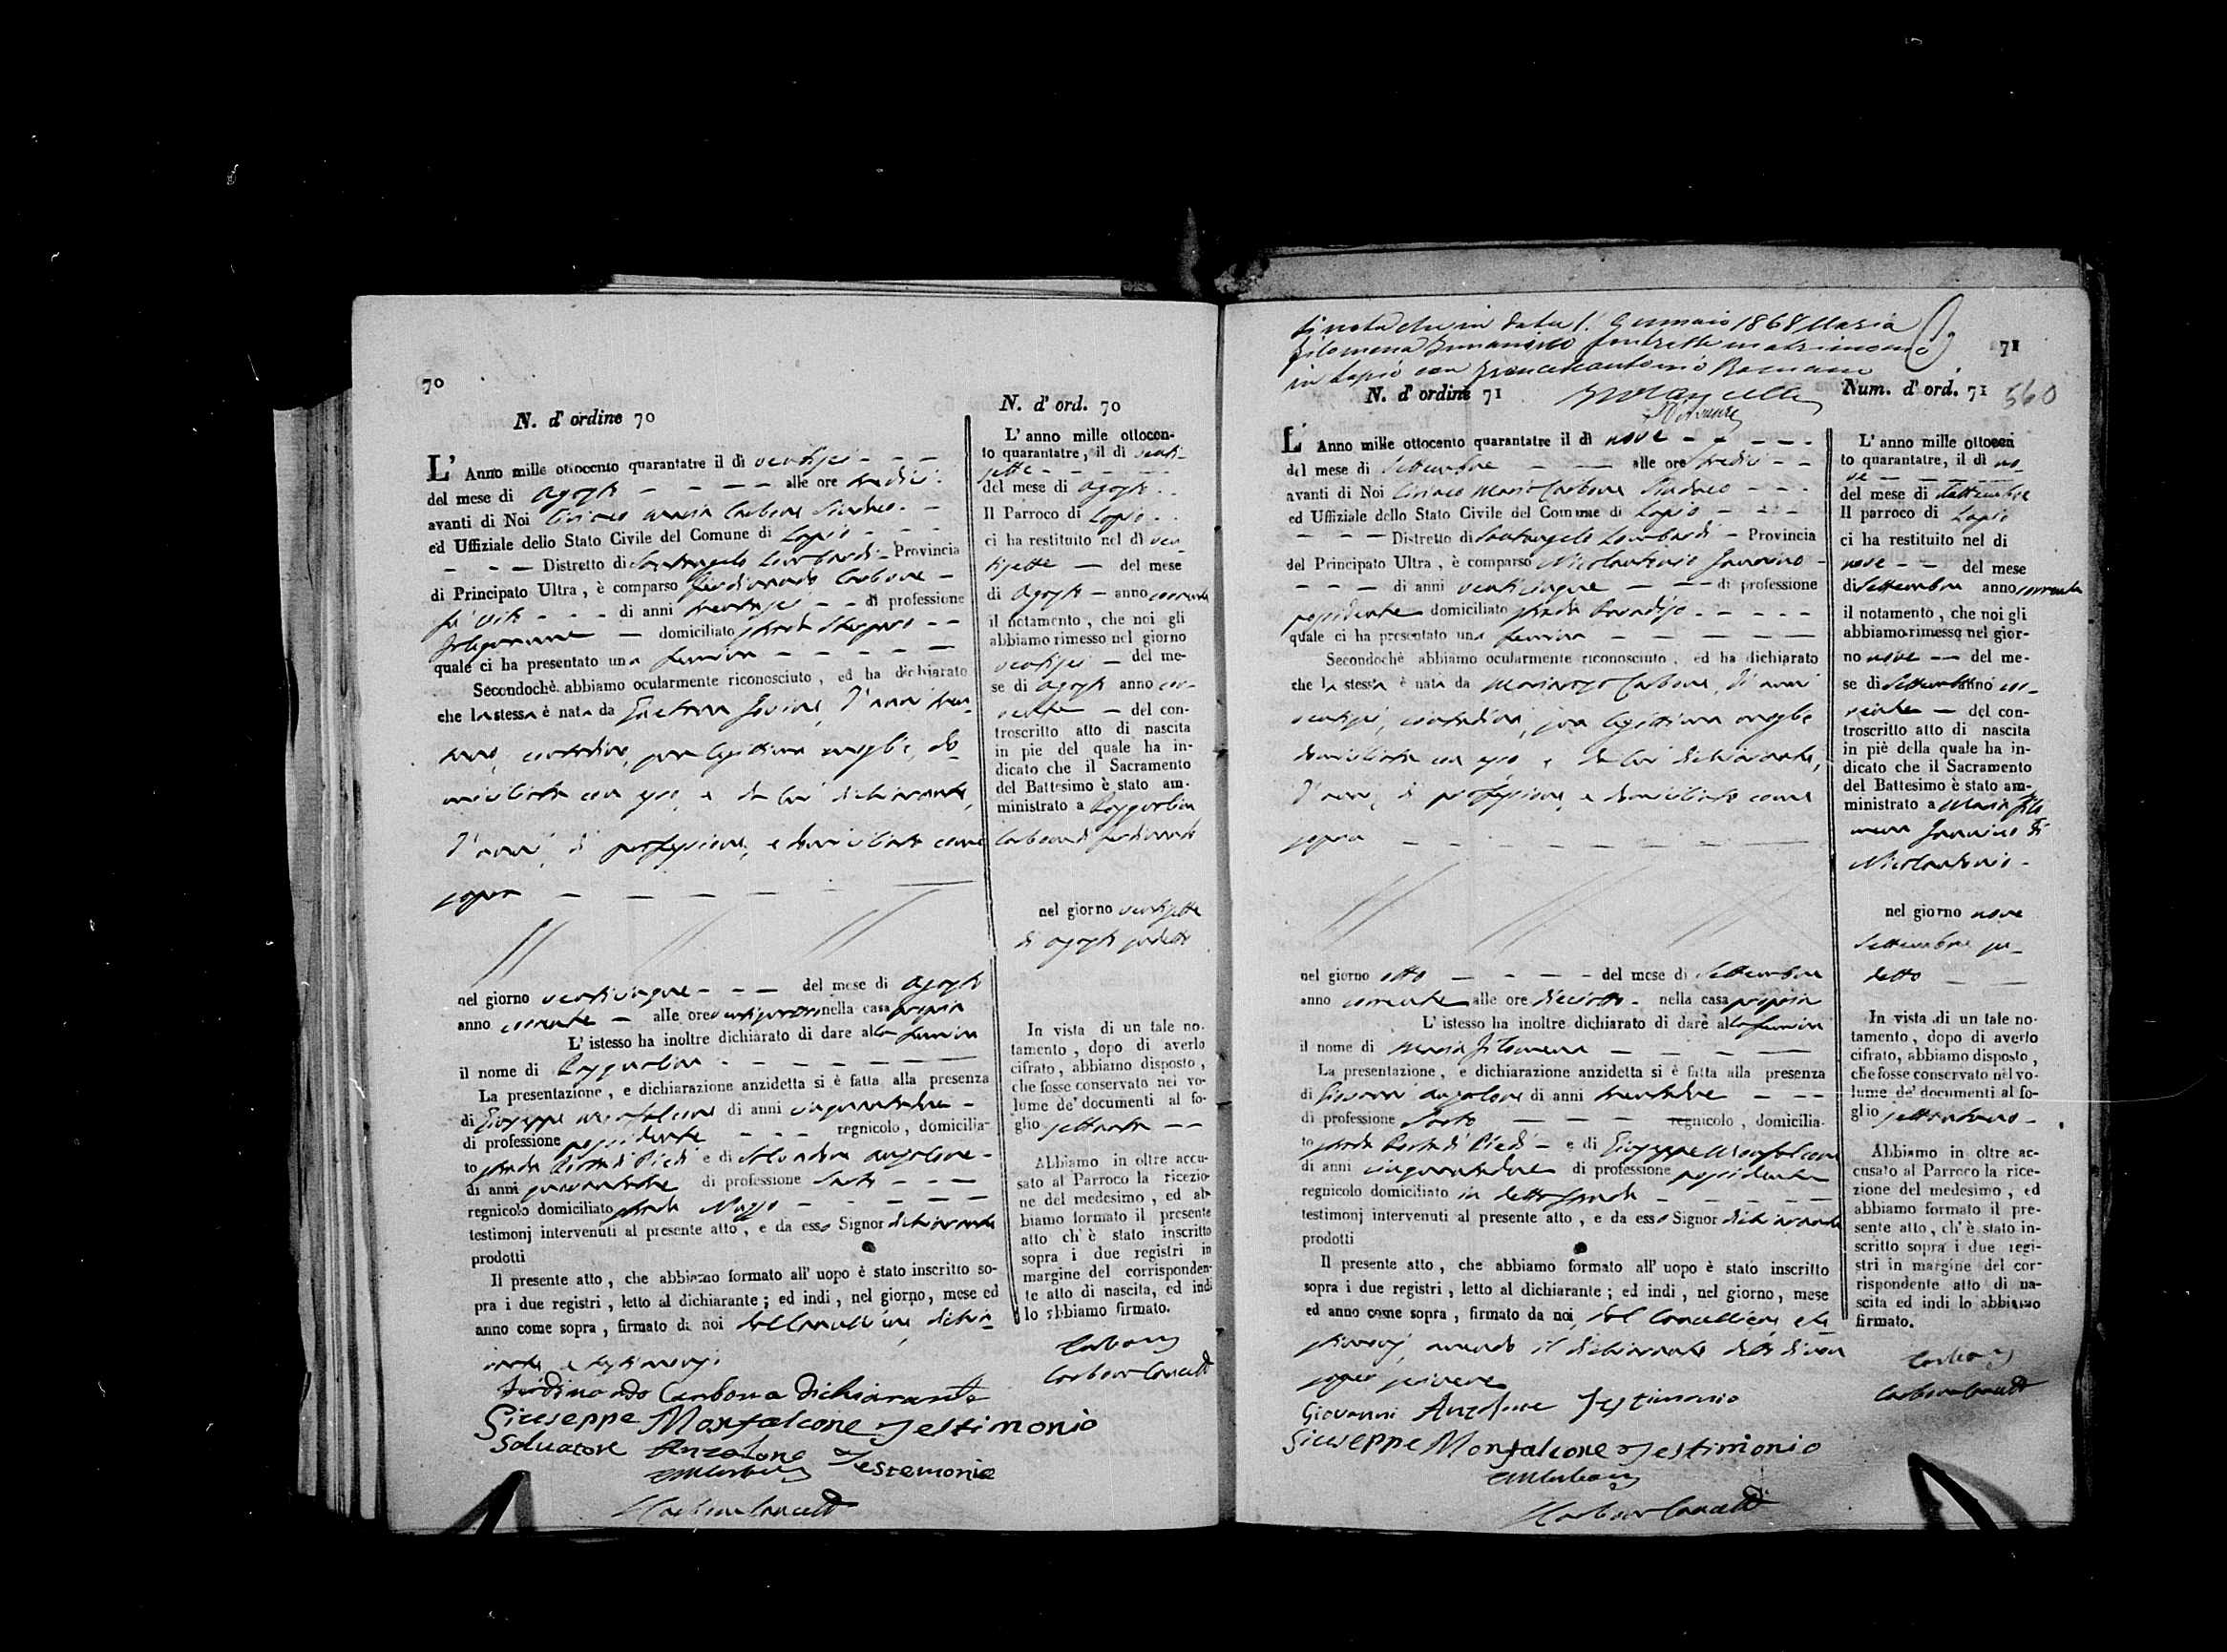 70
N. d' ordine 70
L' Anno mille ottocento quarantatre il dì ventisei
del mese di Agosto alle ore tredici
avanti di Noi Ciriaco Maria Carbone Sindaco
ed Uffiziale dello Stato Civile del Comune di Lapio
Distretto di Santangelo Lombardi Provincia
di Principato Ultra, è comparso Ferdinando Carbone
fu Vito di anni trentasei di professione
Falegname domiciliato strada
quale ci ha presentato una femina
Secondochè abbiamo ocularmente riconosciuto, ed ha dichiarato
che la stessa è nata da Gaetana Jovine, d'anni tren-
, contadina, sua legittima moglie, do-
miciliata con esso, e da lui dichiarante,
d'anni, di professione, e domiciliato come
sopra
nel giorno venticinque del mese di Agosto
anno corrente alle ore nella casa propria
L' istesso ha inoltre dichiarato di dare alla femina
il nome di
La presentazione, e dichiarazione anzidetta si è fatta alla presenza
di Giuseppe Monfalcone di anni cinquantadue
di professione possidente regnicolo, domicilia-
to strada Piedi e di Salvadore Anzalone
di anni di professione Sarto
regnicolo domiciliato strada
testimonj intervenuti al presente atto, e da esso Signor dichiarante
prodotti
Il presente atto, che abbiamo formato all' uopo è stato inscritto so-
pra i due registri, letto al dichiarante; ed indi, nel giorno, mese ed
anno come sopra, firmato da noi dal Cancelliere, dichia-
rante e testimonj.
Ferdinando Carbone Dichiarante
Giuseppe Monfalcone Testimonio
Salvatore Anzalone Testemonie
Carbone Cancell
N. d' ord. 70
L' anno mille ottocen-
to quarantatre, il dì venti-
sette
del mese di Agosto
Il Parroco di Lapio
ci ha restituito nel dì ven-
tisette del mese
di Agosto anno corrente
il notamento, che noi gli
abbiamo rimesso nel giorno
ventisei del me-
se di Agosto anno cor-
rente del con-
troscritto atto di nascita
in pie del quale ha in-
dicato che il Sacramento
del Battesimo è stato am-
ministrato a
Carbone di Ferdinando
nel giorno ventisette
di Agosto sudetto
In vista di un tale no-
tamento, dopo di averlo
cifrato, abbiamo disposto,
che fosse conservato nei vo-
lume de' documenti al fo-
glio settanta
Abbiamo in oltre accu-
sato al Parroco la ricezio-
ne del medesimo, ed ab-
biamo formato il presente
atto ch' è stato inscritto
sopra i due registri in
margine del corrisponden-
te atto di nascita, ed indi
lo abbiamo firmato.
Carbone
Carbone Cancell
Si nota che in data 1. Gennaio 1868 Maria
Filomena contratto matrimonio
in Lapio con Francescantonio Romano
71
N. d' ordine 71
L' Anno mille ottocento quarantatre il dì nove
del mese di Settembre alle ore tredici
avanti di Noi Ciriaco Maria Carbone Sindaco
ed Uffiziale dello Stato Civile del Comune di Lapio
Distretto di Santangelo Lombardi Provincia
del Principato Ultra, è comparso Nicolantonio
di anni venticinque di professione
possidente domiciliato strada Paradiso
quale ci ha presentato una femina
Secondochè abbiamo ocularmente riconosciuto, ed ha dichiarato
che la stessa è nata da Mariarosa Carbone, d'anni
ventisei, contadina, sua legittima moglie
domiciliata con esso e da lui dichiarante,
d'anni, di professione, e domiciliato come
sopra
nel giorno otto del mese di Settembre
anno corrente alle ore dieciotto nella casa propria
L' istesso ha inoltre dichiarato di dare alla femina
il nome di Maria Filomena
La presentazione, e dichiarazione anzidetta si è fatta alla presenza
di Giovanni Anzalone di anni trentadue
di professione Sarto regnicolo, domicilia-
to strada Piedi e di Giuseppe Monfalcone
di anni cinquantadue di professione possidente
regnicolo domiciliato in detta strada
testimonj intervenuti al presente atto, e da esso Signor dichiarante
prodotti
Il presente atto, che abbiamo formato all' uopo è stato inscritto
sopra i due registri, letto al dichiarante; ed indi, nel giorno, mese
ed anno come sopra, firmato da noi, dal Cancelliere, e te-
stimonj, avendo il dichiarante detto di non
saper scrivere
Giovanni Anzalone Testimonio
Giuseppe Monfalcone Testimonio
Carbone Cancell
Num. d' ord. 71
560
L' anno mille ottocen
to quarantatre, il dì no-
ve
del mese di Settembre
Il parroco di Lapio
ci ha restituito nel di
nove del mese
di Settembre anno corrente
il notamento, che noi gli
abbiamo rimesso nel gior-
no nove del me-
se di Settembre anno cor-
rente del con-
troscritto atto di nascita
in piè della quale ha in-
dicato che il Sacramento
del Battesimo è stato am-
ministrato a Maria Filo
mena di
Nicolantonio
nel giorno nove
Settembre su-
detto
In vista di un tale no-
tamento, dopo di averlo
cifrato, abbiamo disposto,
che fosse conservato nel vo-
lume de' documenti al fo-
glio settantuno
Abbiamo in oltre ac-
cusato al Parroco la rice-
zione del medesimo, ed
abbiamo formato il pre-
sente atto, ch' è stato in-
scritto sopra i due regi-
stri in margine del cor-
rispondente atto di na-
scita ed indi lo abbiamo
firmato.
Carbone
Carbone Cancell